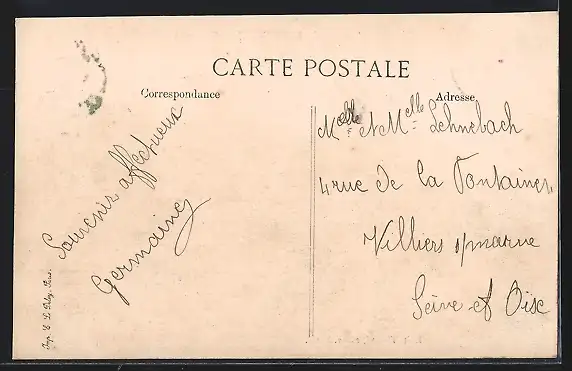 CARTE POSTALE
Correspondance
Adresse
Souvenir affectueux
Germaine
Melle et Melle Lehnebach
4 rue de la Fontaine
Villiers s/marne
Seine et Oise